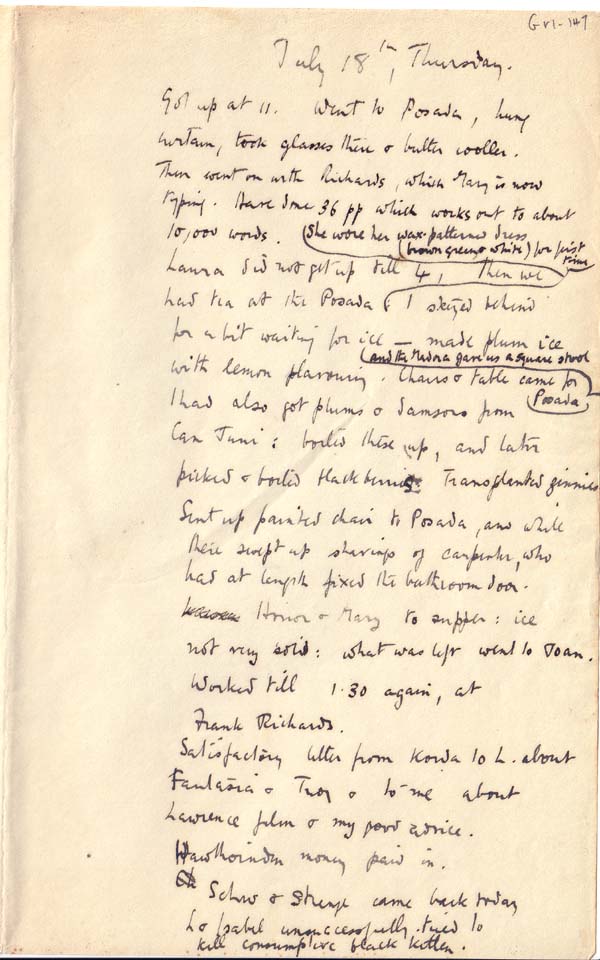 GV1-147
July 18th, Thursday.
Got up at 11. Went to Posada, hung
curtain, took glasses there & butter cooler.
Then went on with Richards, which Mary is now
typing. Have done 36 pp which works out to about
10,000 words. (She wore her wax-patterned dress
(brown green & white) for first
time
Laura did not get up till 4, then we
had tea at the Posada & I stayed behind
for a bit waiting for ice — made plum ice
and the Madora gave us a square stool
with lemon flavouring. Chairs & table came for
Posada
I had also got plums & damsons from
Can Tuni: boiled these up, and later
picked & boiled blackberries. Transplanted zinnias
Sent up painted chair to Posada, and while
there swept up shavings of carpenter, who
had at length fixed the bathroom door.
Honor & Mary to supper: ice
not very solid: what was left went to Joan.
Worked till 1.30 again, at
Frank Richards.
Satisfactory letter from Korda to L. about
Fantasia & Troy & to me about
Lawrence film & my good advice.
Hawthornden money paid in.
Schw & Strenge came back today
L & Isabel unsuccessfully tried to
kill consumptive black kitten.